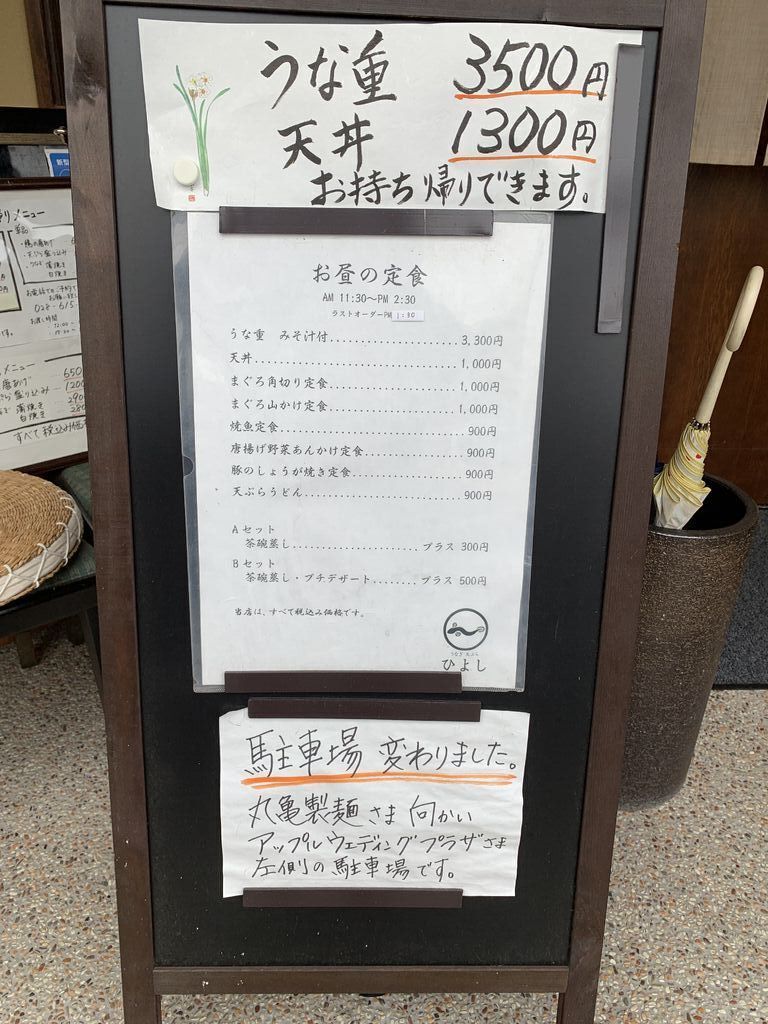 うな重 3500円
天丼 1300円
お持ち帰りできます。
お昼の定食
AM 11:30～PM 2:30
ラストオーダーPM 1:30
うな重 みそ汁付......................3,300円
天丼..........................................1,000円
まぐろ角切り定食......................1,000円
まぐろ山かけ定食......................1,000円
焼魚定食................................900円
唐揚げ野菜あんかけ定食.................900円
豚のしょうが焼き定食...................900円
天ぷらうどん...........................900円
Aセット
茶碗蒸し.....................プラス 300円
Bセット
茶碗蒸し・プチデザート........プラス 500円
当店は、すべて税込み価格です。
うなぎ 天ぷら
ひよし
駐車場 変わりました。
丸亀製麺さま 向かい
アップルウェディングプラザさま
左側の駐車場です。
メニュー
単品
028-615
メニュー
650
1200
290
280
蒲焼き
白焼き
すべて税込み価